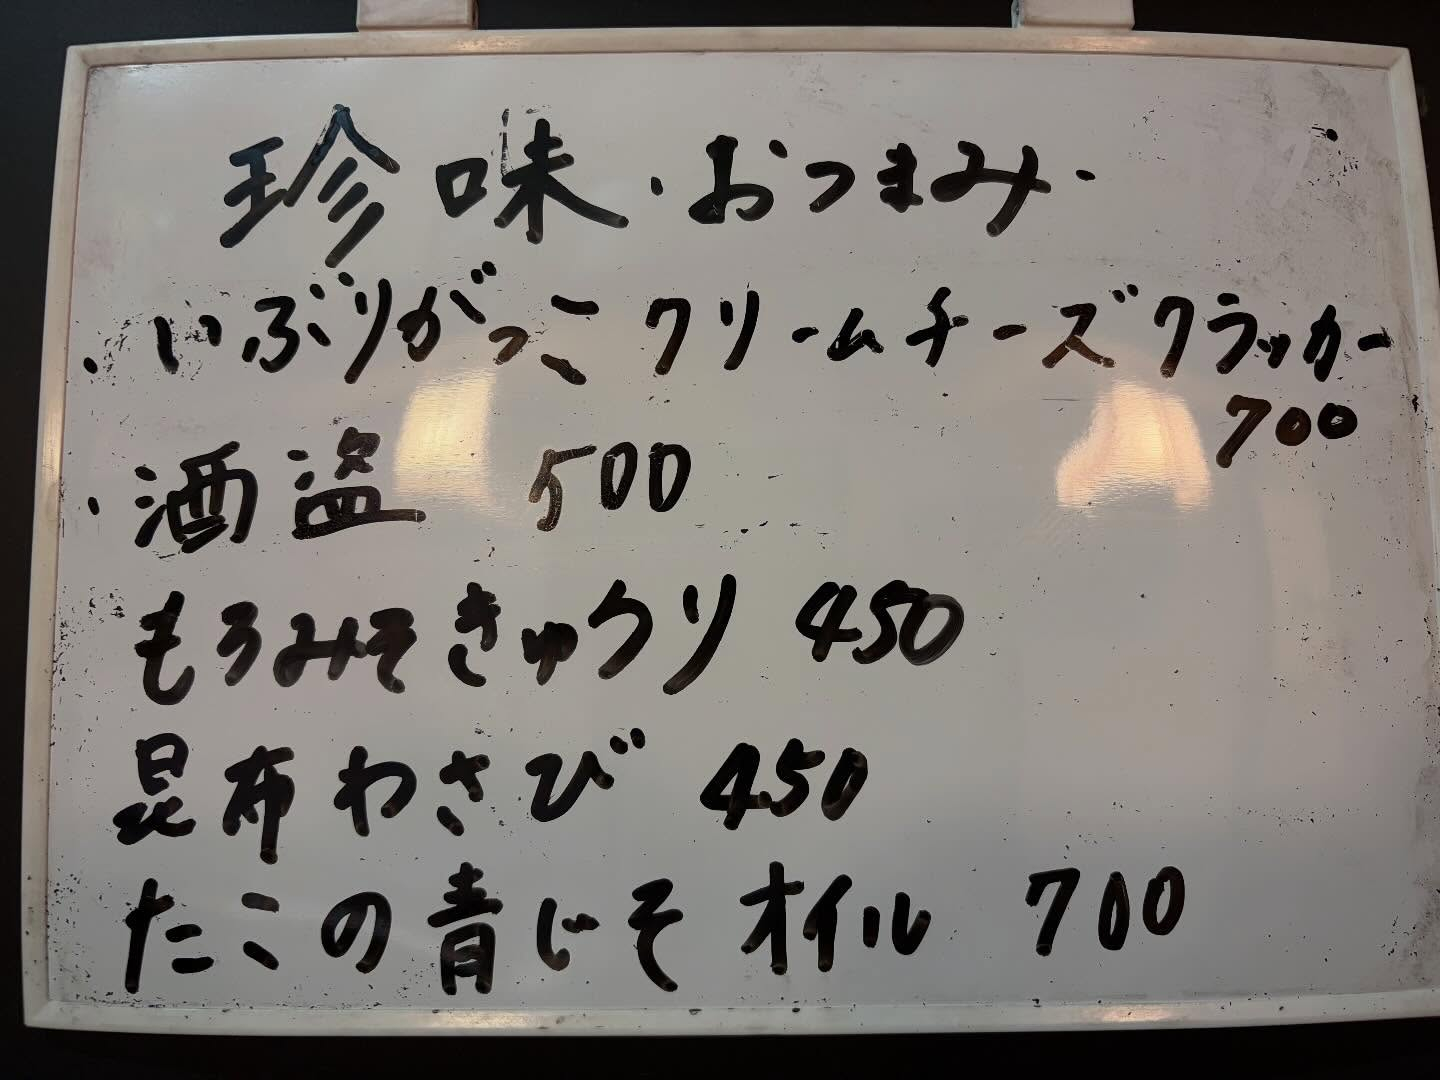 珍味・おつまみ・
・いぶりがっこクリームチーズクラッカー
700
・酒盗 500
もろみそきゅうり 450
昆布わさび 450
たこの青じそオイル 700